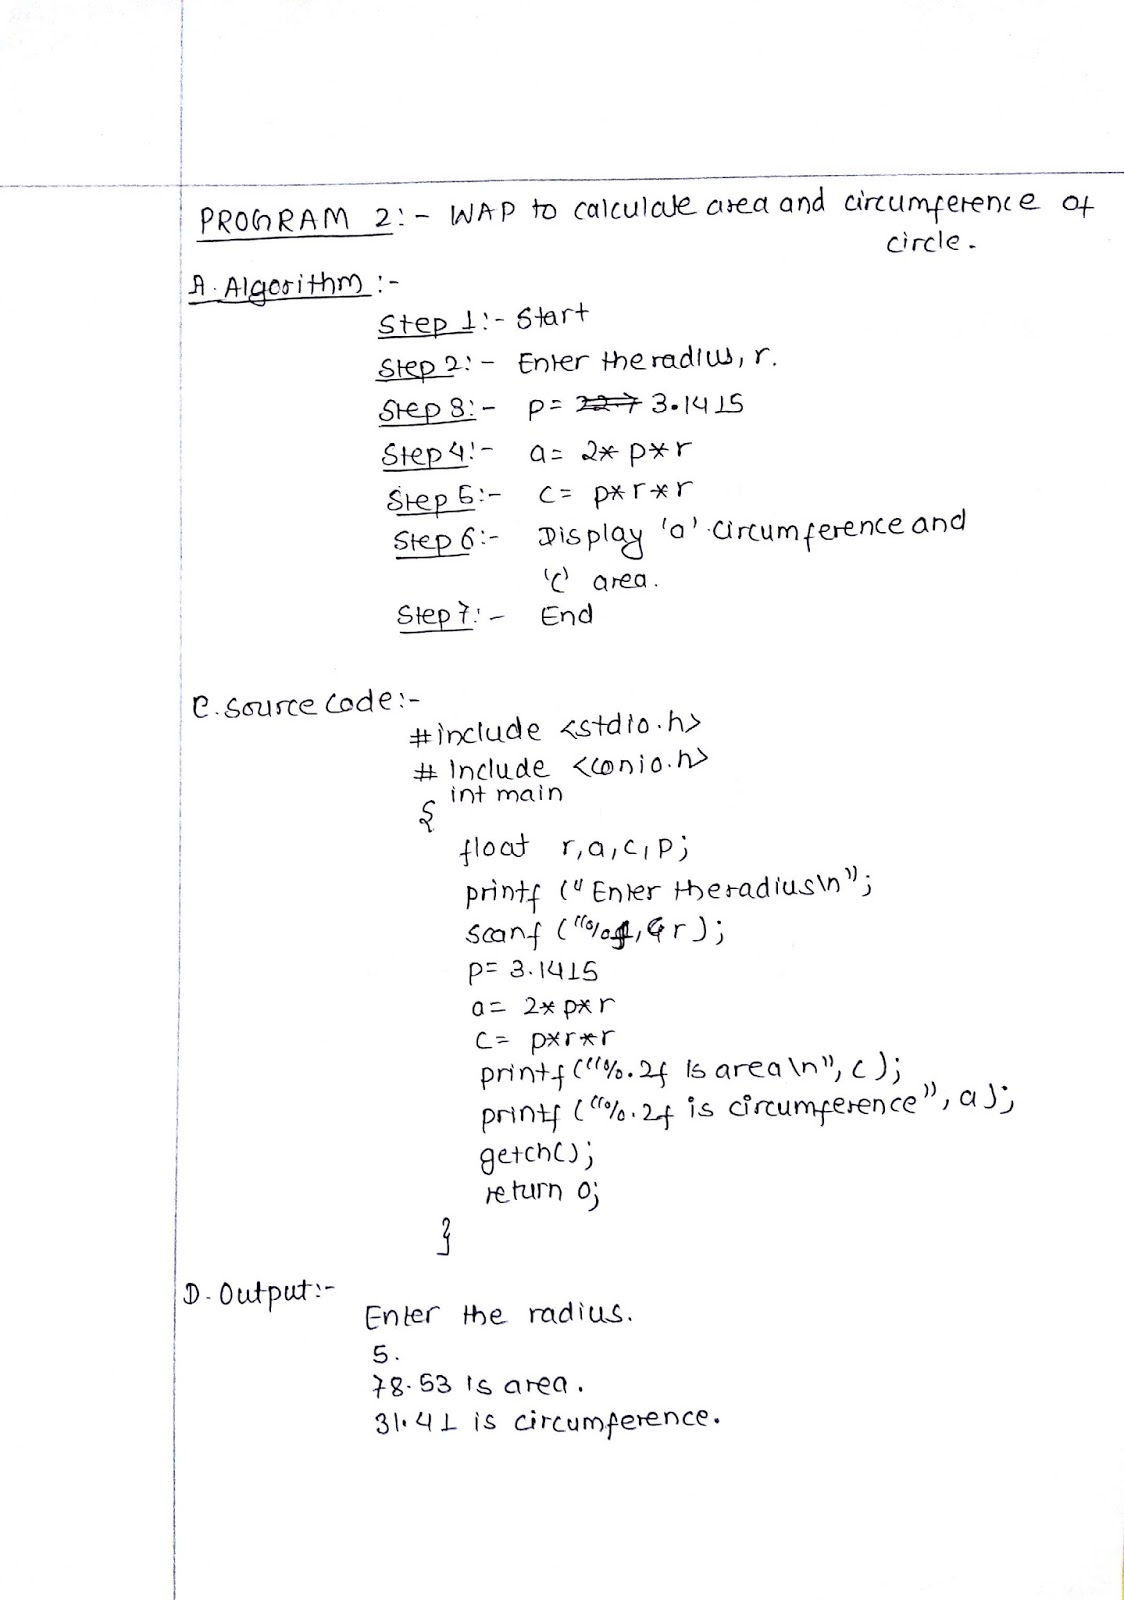 PROGRAM 2:- WAP to calculate area and circumference of
circle.
A. Algorithm :-
Step 1:- Start
Step 2:- Enter the radius, r.
Step 3:- p= 22.7 3.1415
Step 4:- a= 2* p*r
Step 5:- c= p*r*r
Step 6:- Display 'a' circumference and
'c' area.
Step 7:- End
C. Source code:-
#include <stdio.h>
# Include <conio.h>
int main
{
float r,a,c,p;
printf ("Enter the radius\n");
scanf ("%f, &r);
p= 3.1415
a= 2* p*r
c= p*r*r
printf ("%.2f is area \n", c);
printf ("%.2f is circumference", a);
getch();
return 0;
}
D. Output:-
Enter the radius.
5.
78.53 is area.
31.41 is circumference.